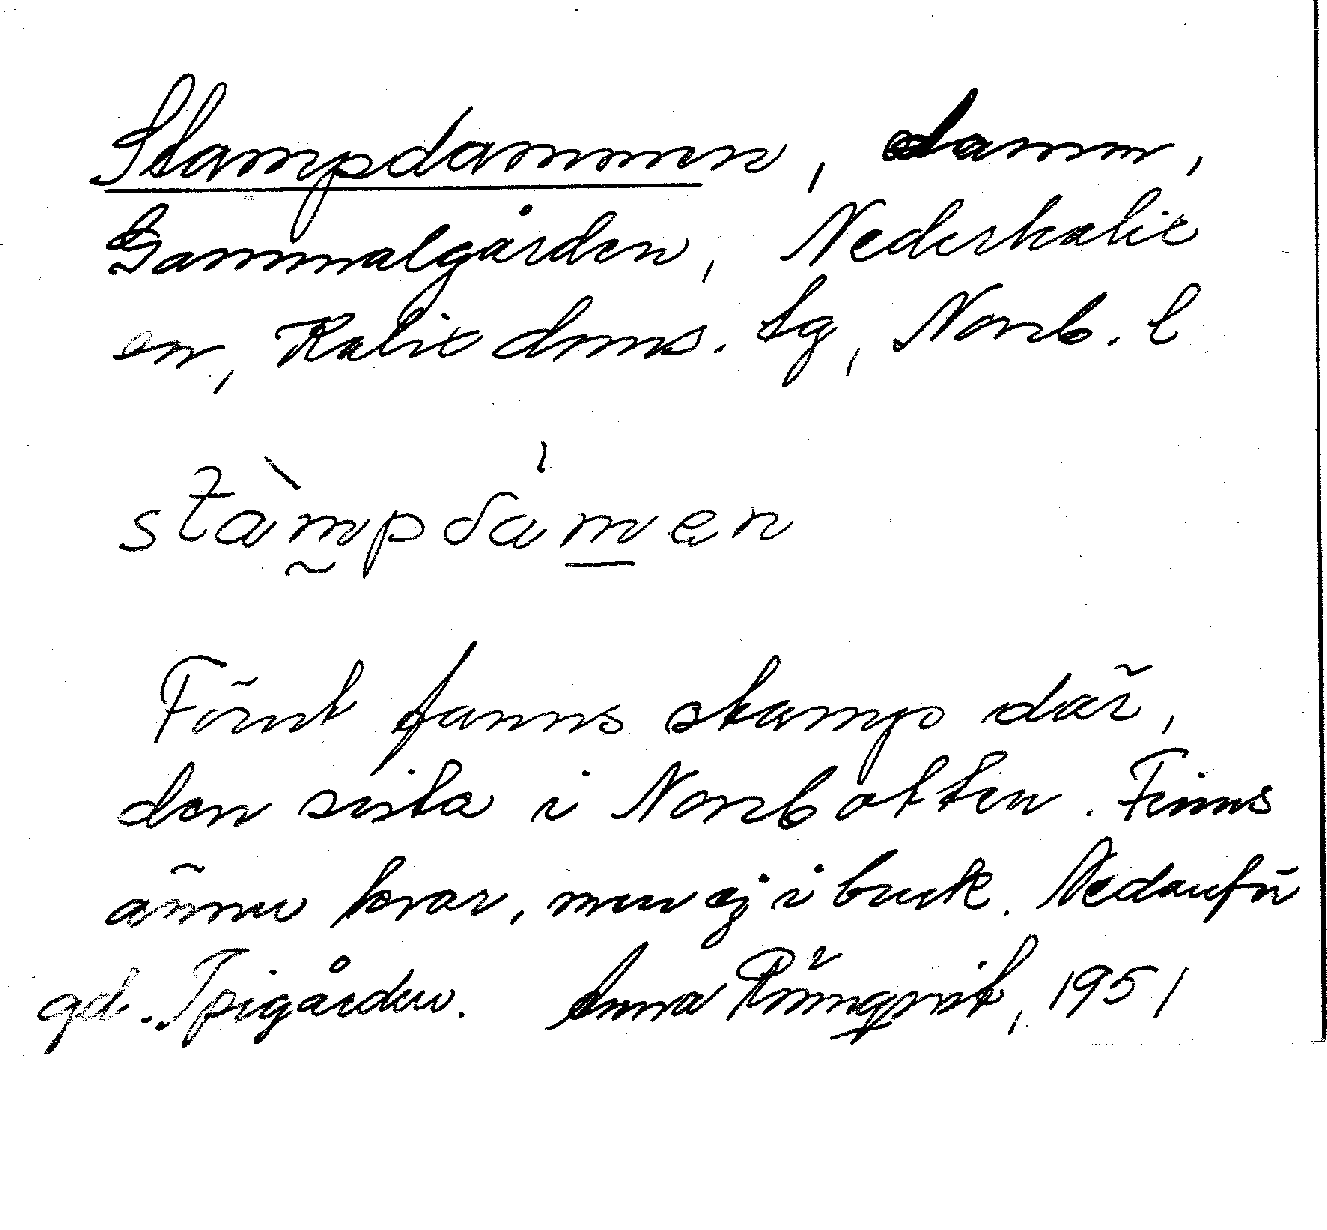 Stampdammen, damm,
Gammalgården, Nederkalix
en, Kalix dms. tg, Norrb. l
stàmpdámen
Förut fanns stamp där,
den sista i Norrbotten. Finns
ännu kvar, men ej i bruk. Nedanför
gd. Spigården. Anna Rönnqvist, 1951